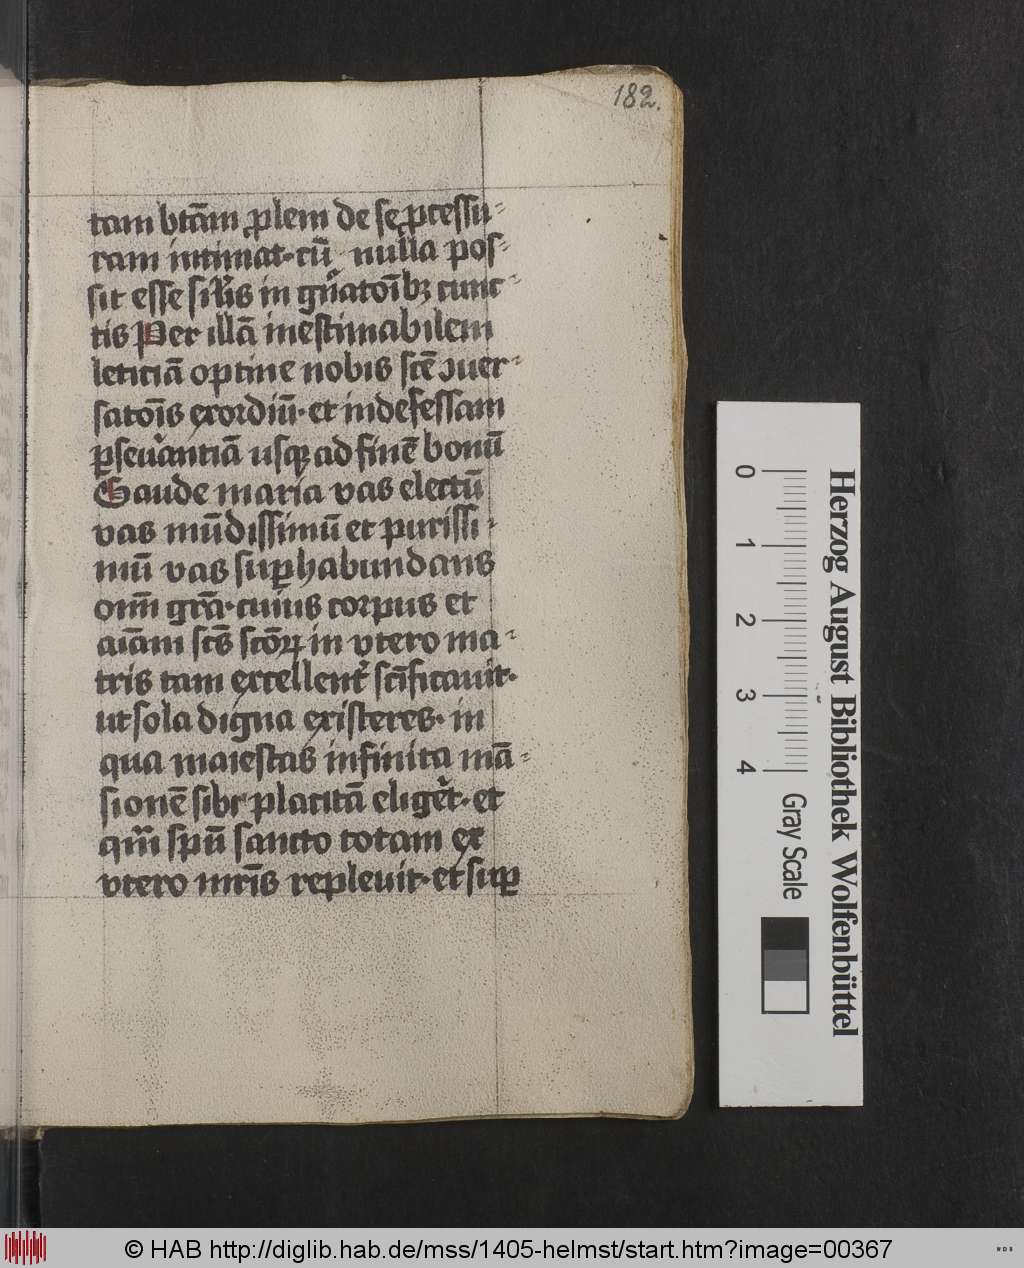 182.
tam btām ꝓlem de se ꝓcessu-
ram intimat· cū nulla pos-
sit esse sil'is in gn̄atoībꝫ cunc-
tis Per illā inestimabilem
leticiā optine nobis scē ꝯuer-
satoīs exordiū· et indefessam
ꝑseuꝰantiā usqꝫ ad finē bonū
Gaude maria vas electū
vas mūdissimū et purissi-
mū vas suꝑhabundans
omī grā· cuius corpus et
aīam scūs scōꝝ in vtero ma-
tris tam excellent̄ scīficauit·
ut sola digna existeres· in
qua maiestas infinita mā-
sionē sibi placitā eliger̄t· et
qm̄ spū sancto totam ex
vtero mr̄is repleuit· et suꝑ
0
1
2
3
4
Gray Scale
Herzog August Bibliothek Wolfenbüttel
© HAB http://diglib.hab.de/mss/1405-helmst/start.htm?image=00367